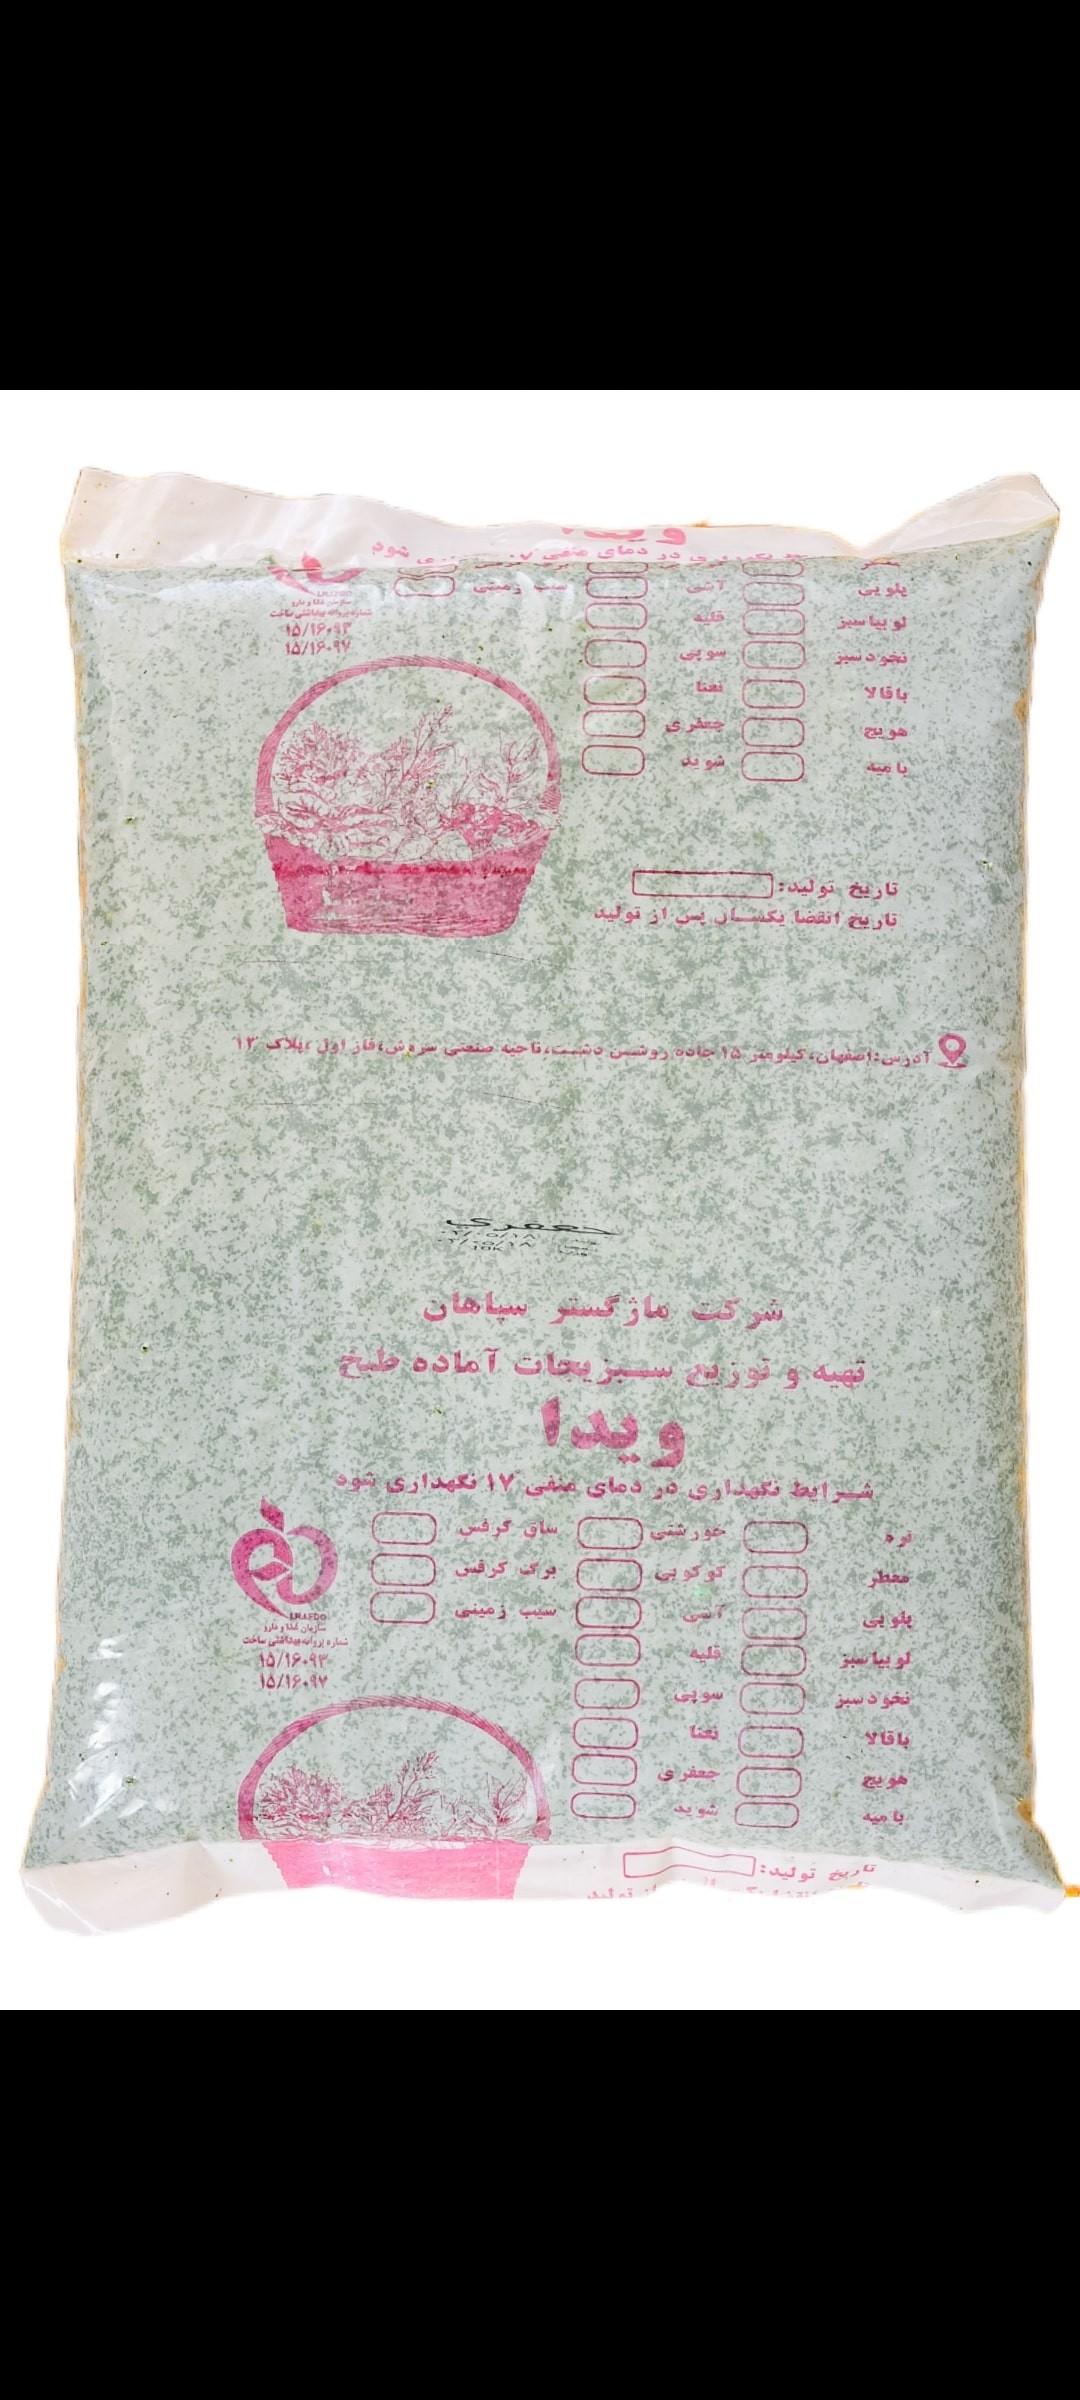 ویدا
در دمای منفی ۱۷
شود
سیب زمینی
آشی
پلویی
قلیه
لوبیا سبز
سوپی
نخود سبز
نعنا
باقالا
جعفری
هویج
شوید
بامیه
سازمان غذا و دارو
شماره پروانه بهداشتی ساخت
۱۵/۱۶۰۹۳
۱۵/۱۶۰۹۷
تاریخ تولید:
تاریخ انقضا یکسال پس از تولید
آدرس:اصفهان،کیلومتر ۱۵ جاده روشن دشت،ناحیه صنعتی سروش،فاز اول ،پلاک ۱۳
جعفری
10K
شرکت ماژگستر سپاهان
تهیه و توزیع سبزیجات آماده طبخ
ویدا
شرایط نگهداری در دمای منفی ۱۷ نگهداری شود
تره
خورشتی
ساق کرفس
معطر
کوکویی
برگ کرفس
پلویی
آشی
سیب زمینی
لوبیا سبز
قلیه
نخود سبز
سوپی
باقالا
نعنا
هویج
جعفری
بامیه
شوید
IR.I.FDO
سازمان غذا و دارو
شماره پروانه بهداشتی ساخت
۱۵/۱۶۰۹۳
۱۵/۱۶۰۹۷
تاریخ تولید: